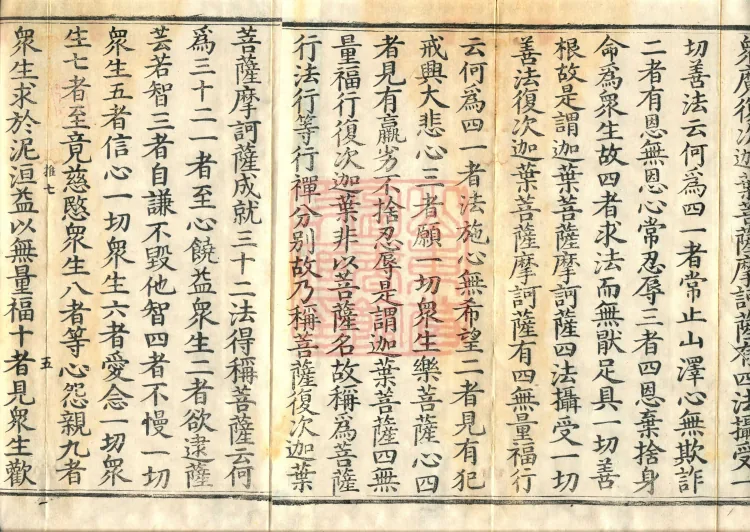 衆復次迦葉菩薩摩訶薩有四法攝受一
切善法云何爲四一者常止山澤心無欺詐
二者有恩無恩心常忍辱三者四恩棄捨身
命爲衆生故四者求法而無猒足具一切善
根故是謂迦葉菩薩摩訶薩四法攝受一切
善法復次迦葉菩薩摩訶薩有四無量福行
云何爲四一者法施心無希望二者見有犯
戒興大悲心三者願一切衆生樂菩薩心四
者見有羸劣不捨忍辱是謂迦葉菩薩四無
量福行復次迦葉非以菩薩名故稱爲菩薩
行法行等行禪分別故乃稱菩薩復次迦葉
菩薩摩訶薩成就三十二法得稱菩薩云何
爲三十二一者至心饒益衆生二者欲逮薩
芸若智三者自謙不毀他智四者不慢一切
衆生五者信心一切衆生六者愛念一切衆
生七者至竟慈愍衆生八者等心怨親九者
推七 五
衆生求於泥洹益以無量福十者見衆生歡